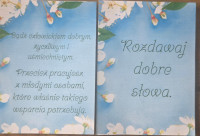 Bądź człowiekiem dobrym,
zgodnym i
uśmiechniętym.
Przecież pracujesz
z młodymi osobami,
które właśnie takiego
wsparcia potrzebują.
Rozdawaj
dobre
słowa.